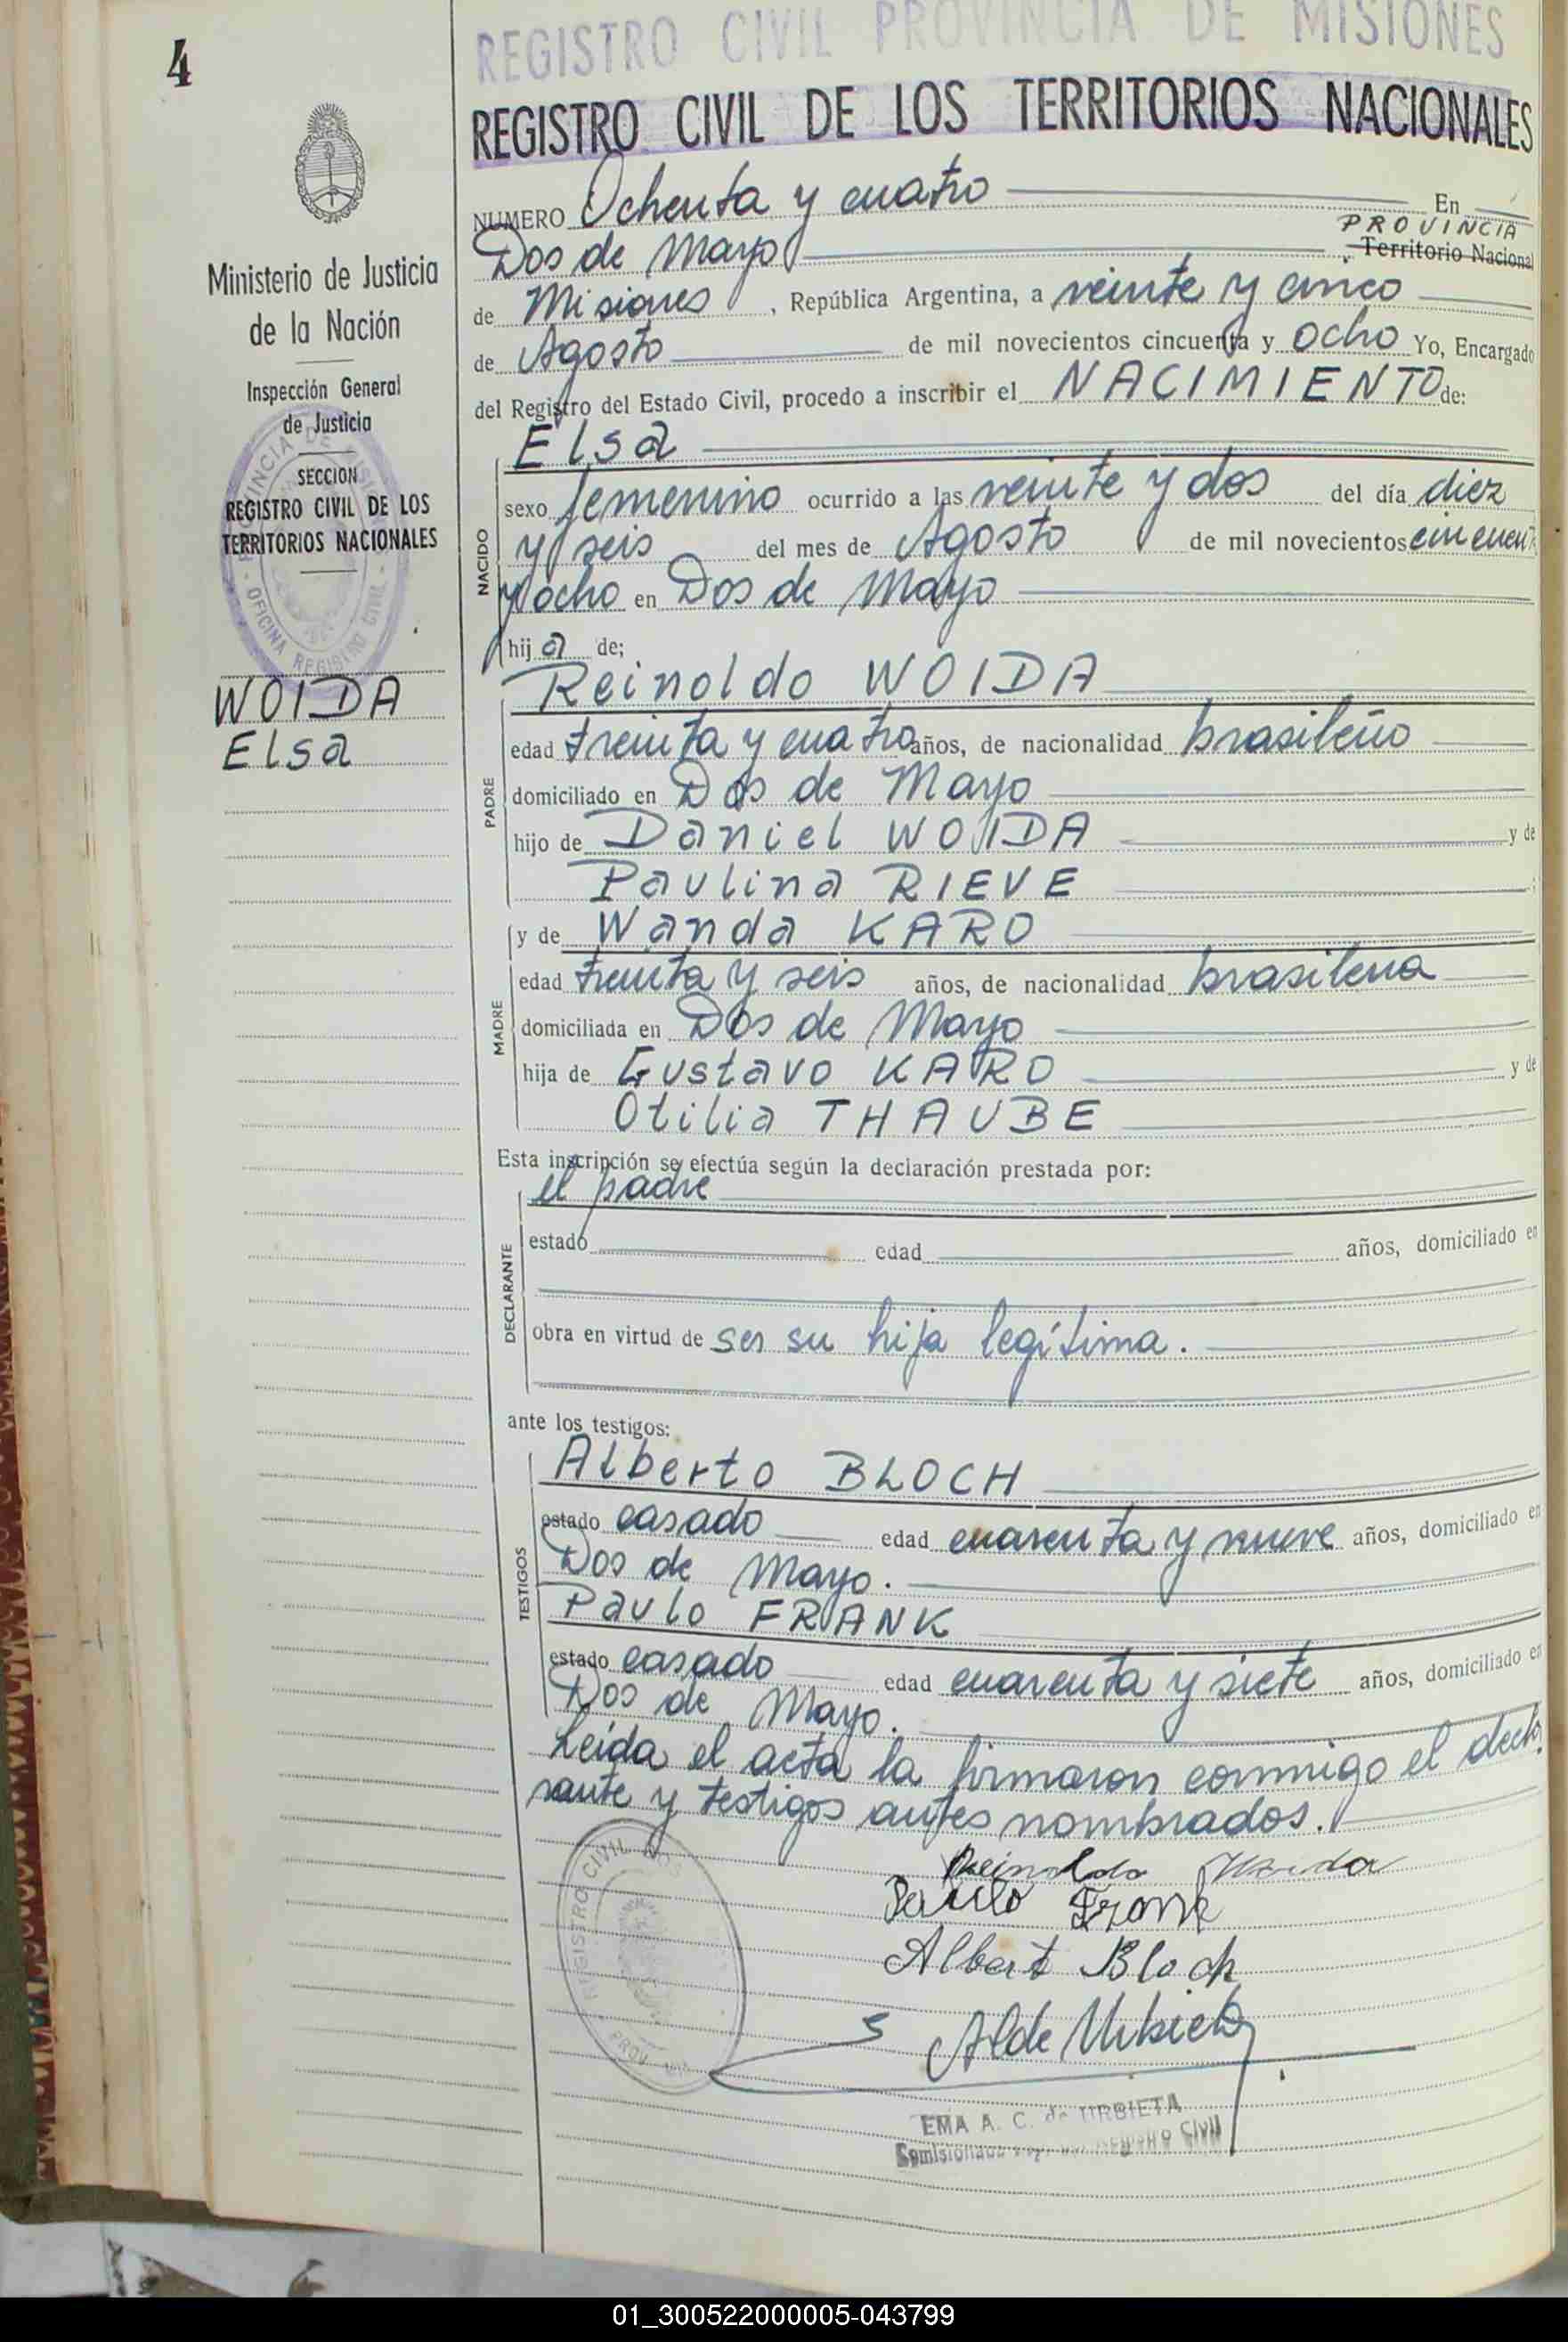 4
REGISTRO CIVIL PROVINCIA DE MISIONES
REGISTRO CIVIL DE LOS TERRITORIOS NACIONALES
Ministerio de Justicia
de la Nación
Inspección General
de Justicia
SECCION
REGISTRO CIVIL DE LOS
TERRITORIOS NACIONALES
PROVINCIA DE MISIONES
OFICINA REGISTRO CIVIL
WOIDA
Elsa
NUMERO Ochenta y cuatro En
Dos de Mayo PROVINCIA Territorio Nacional
de Misiones, República Argentina, a veinte y cinco
de Agosto de mil novecientos cincuenta y ocho Yo, Encargado
del Registro del Estado Civil, procedo a inscribir el NACIMIENTO de:
NACIDO
Elsa
sexo femenino ocurrido a las veinte y dos del día diez
y seis del mes de Agosto de mil novecientos cincuen
y ocho en Dos de Mayo
hija de;
PADRE
Reinoldo WOIDA
edad treinta y cuatro años, de nacionalidad brasileño
domiciliado en Dos de Mayo
hijo de Daniel WOIDA y de
Paulina RIEVE
MADRE
y de Wanda KARO
edad treinta y seis años, de nacionalidad brasilena
domiciliada en Dos de Mayo
hija de Gustavo KARO y de
Otilia THAUBE
Esta inscripción se efectúa según la declaración prestada por:
DECLARANTE
el padre
estado edad años, domiciliado en
obra en virtud de ser su hija legítima.
ante los testigos:
TESTIGOS
Alberto BLOCH
estado casado edad cuarenta y nueve años, domiciliado en
Dos de Mayo.
Paulo FRANK
estado casado edad cuarenta y siete años, domiciliado en
Dos de Mayo.
Leída el acta la firmaron conmigo el decla
rante y testigos antes nombrados.
Reinoldo Woida
Paulo Frank
Albert Bloch
Alde Urbieta
REGISTRO CIVIL
PROV.
EMA A. C. de URBIETA
Registro Civil
01_300522000005-043799